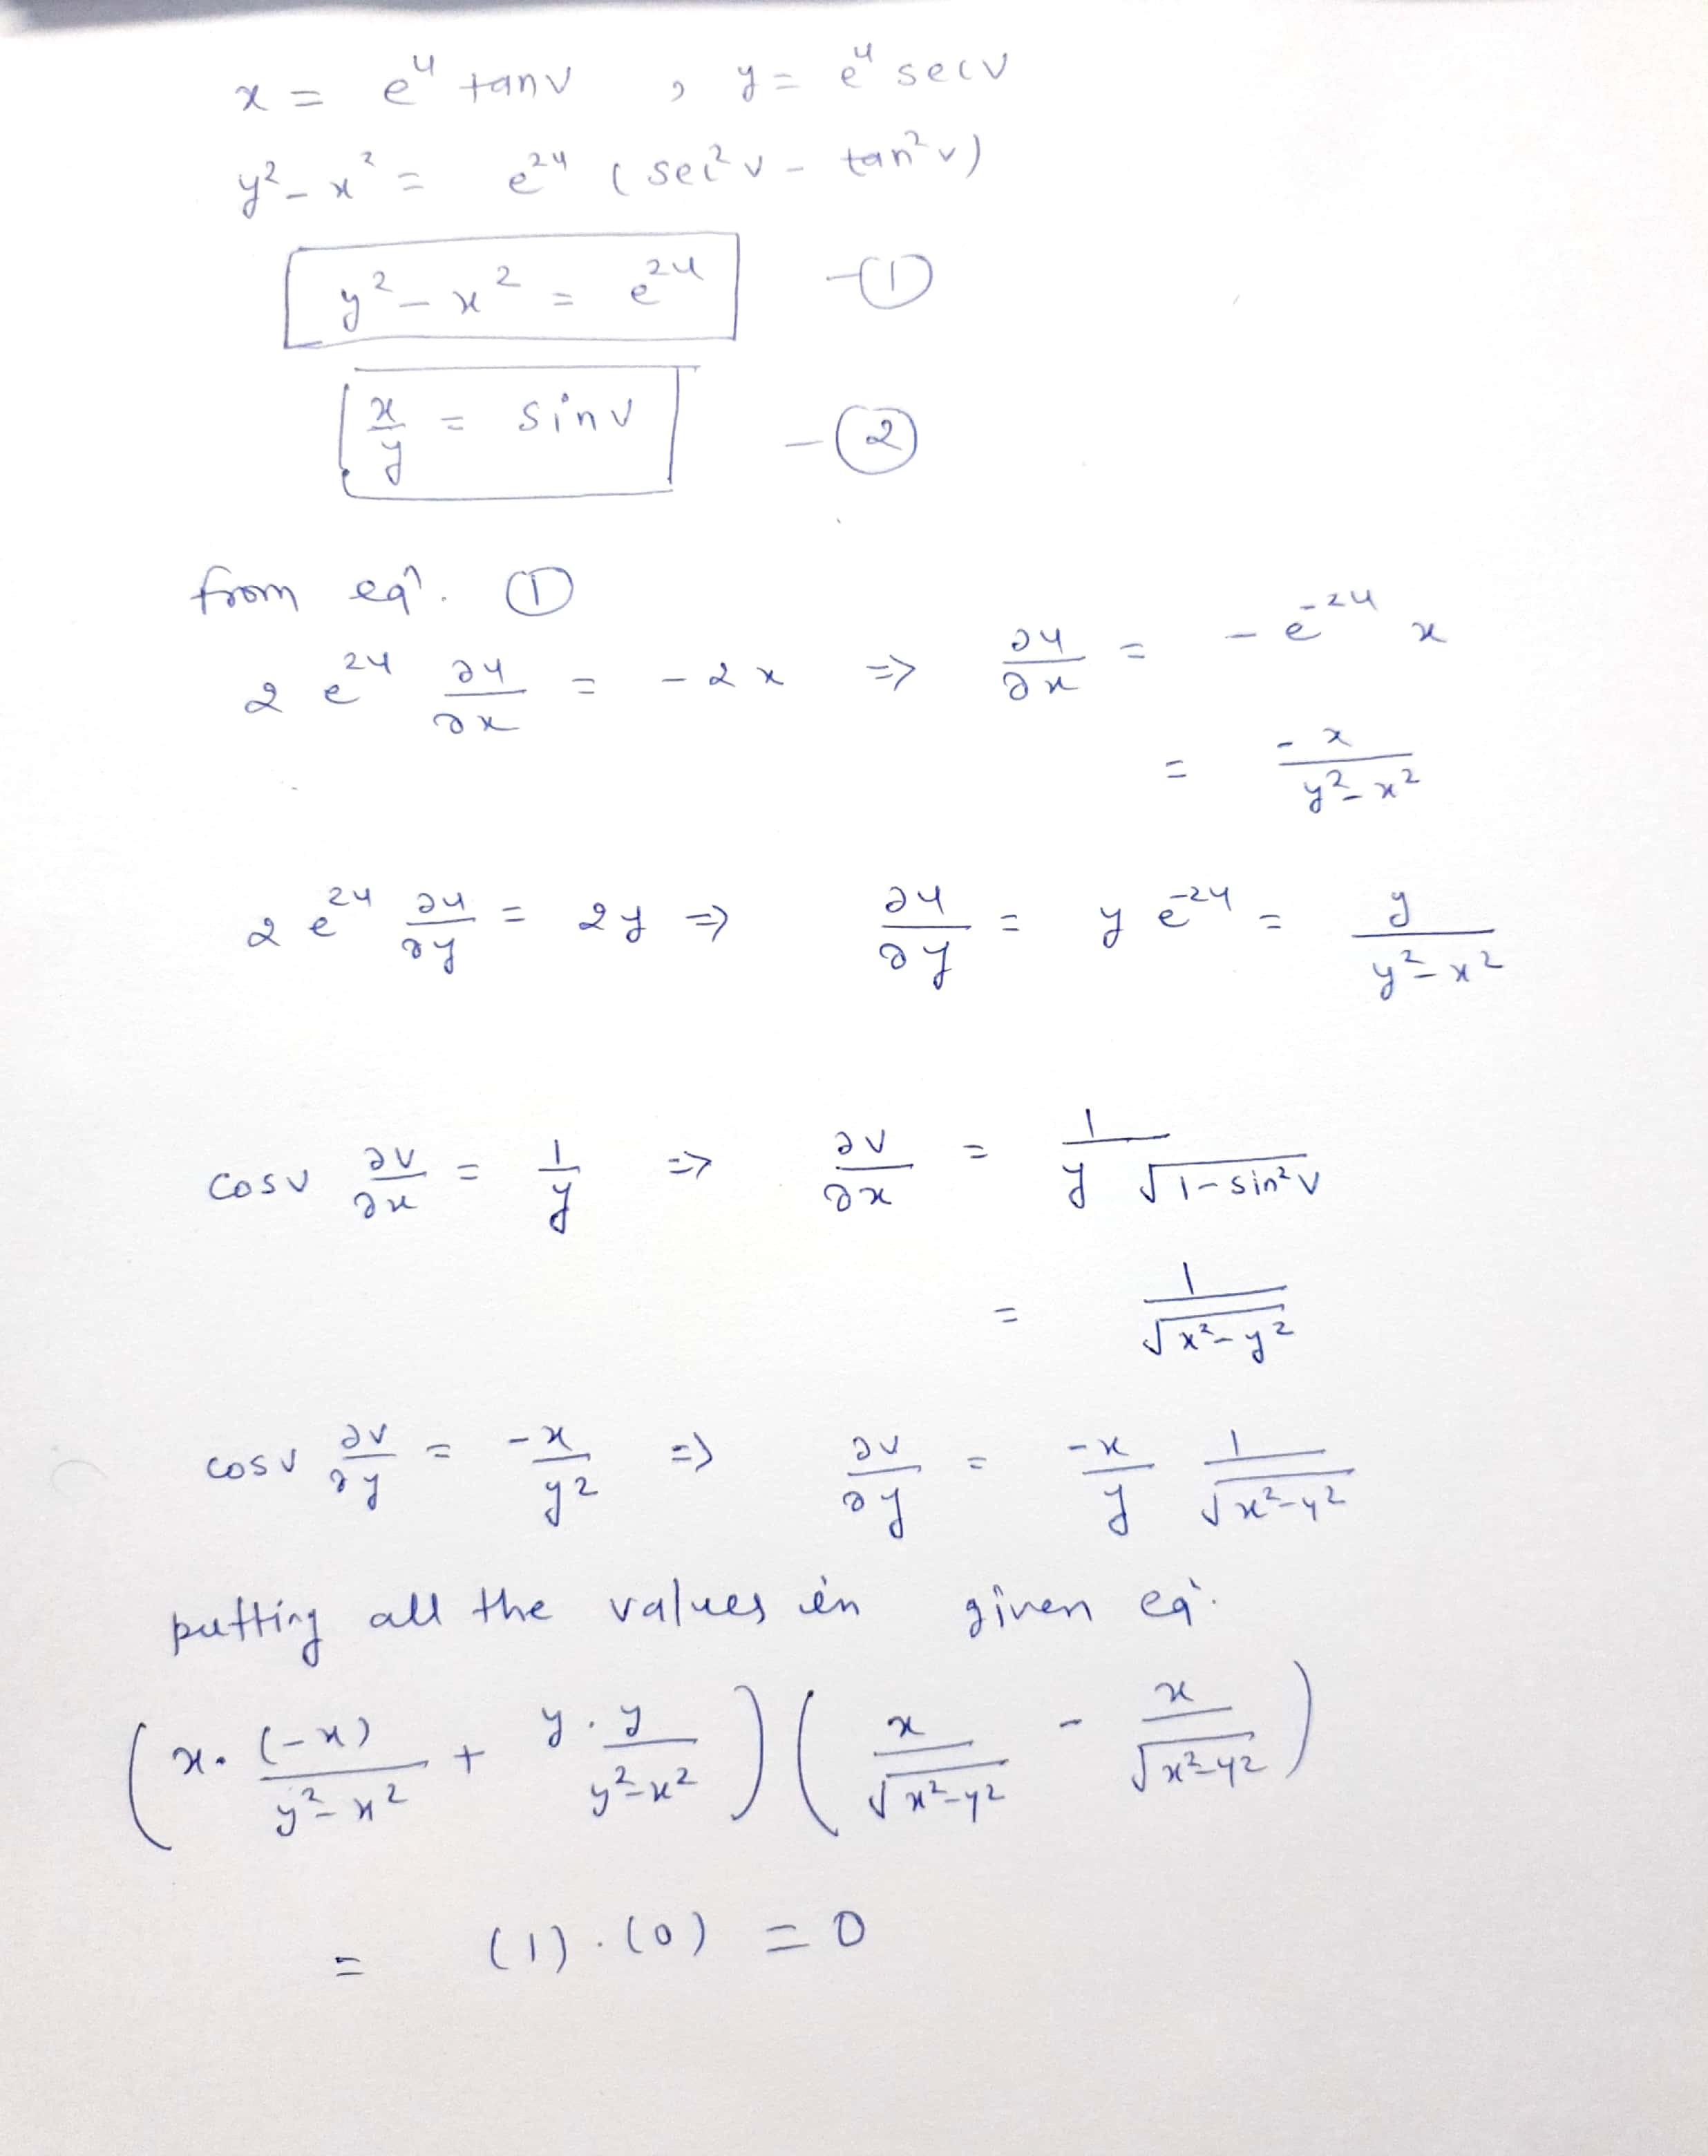 x = e^u tanv , y = e^u secv
y² - x² = e^2u (sec²v - tan²v)
y² - x² = e^2u - ①
x/y = sinv - ②
from eqⁿ. ①
2 e^2u ∂u/∂x = -2x => ∂u/∂x = - e^-2u x
= -x/(y²-x²)
2 e^2u ∂u/∂y = 2y => ∂u/∂y = y e^-2u = y/(y²-x²)
cosv ∂v/∂x = 1/y => ∂v/∂x = 1/(y √(1-sin²v))
= 1/√(x²-y²)
cosv ∂v/∂y = -x/y² => ∂v/∂y = -x/y 1/√(x²-y²)
putting all the values in given eqⁿ.
(x.(-x)/(y²-x²) + y.y/(y²-x²)) (x/√(x²-y²) - x/√(x²-y²))
= (1).(0) = 0